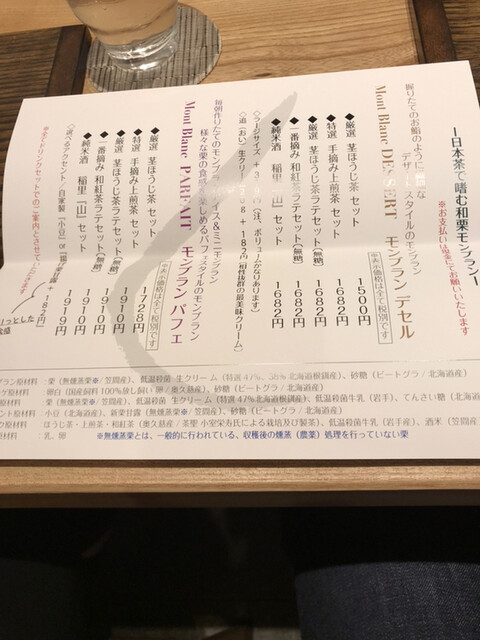 ー日本茶で嗜む和栗モンブランー
※お支払いは現金でお願いいたします
握りたてのお鮨のように
デザートスタイルのモンブラン
Mont Blanc DESSERT モンブラン デセル
※表示価格は全て税別です
◆厳選 茎ほうじ茶 セット 1500円
◆特選 手摘み上煎茶 セット 1682円
◆厳選 茎ほうじ茶ラテセット(無糖) 1682円
◆一番摘み 和紅茶ラテセット(無糖) 1682円
◆純米酒 稲里「山」セット 1682円
◇ラージサイズ + (注、ボリュームかなりあります)
◇追(おい)生クリーム + 182円(相性抜群の最美味クリーム)
毎朝作りたてのモンブランアイス&ミニモンブラン
様々な栗の食感を楽しめるパフェスタイルのモンブラン
Mont Blanc PARFAIT モンブラン パフェ
※表示価格は全て税別です
◆厳選 茎ほうじ茶 セット 1728円
◆特選 手摘み上煎茶 セット 1910円
◆厳選 茎ほうじ茶ラテセット(無糖) 1910円
◆一番摘み 和紅茶ラテセット(無糖) 1910円
◆純米酒 稲里「山」セット 1919円
◇選べるアクセント/自家製「小豆」or「 」 + 182円
※全てドリンクセットでのご案内とさせていただきます
ブラン原材料 栗(無燻蒸栗※/笠間産)、低温殺菌 生クリーム(特選47%、38% 北海道根釧産)、砂糖(ビートグラ/北海道産)
原材料 卵白(国産飼料100%放し飼い卵/奥久慈産)、砂糖(ビートグラ/北海道産)
原材料 栗(無燻蒸栗※/笠間産)、低温殺菌 生クリーム(特選47%北海道根釧産)、低温殺菌牛乳(岩手)、てんさい糖(北海道
ント原材料 小豆(北海道産)、新栗甘露(無燻蒸栗※/笠間産)、砂糖(ビートグラ/北海道産)
原材料 ほうじ茶・上煎茶・和紅茶(奥久慈産/茶里 小室栄寿氏による栽培及び製茶)、低温殺菌牛乳(岩手産)、酒米(笠間産)
原材料 乳、卵 ※無燻蒸栗とは、一般的に行われている、収穫後の燻蒸(農薬)処理を行っていない栗